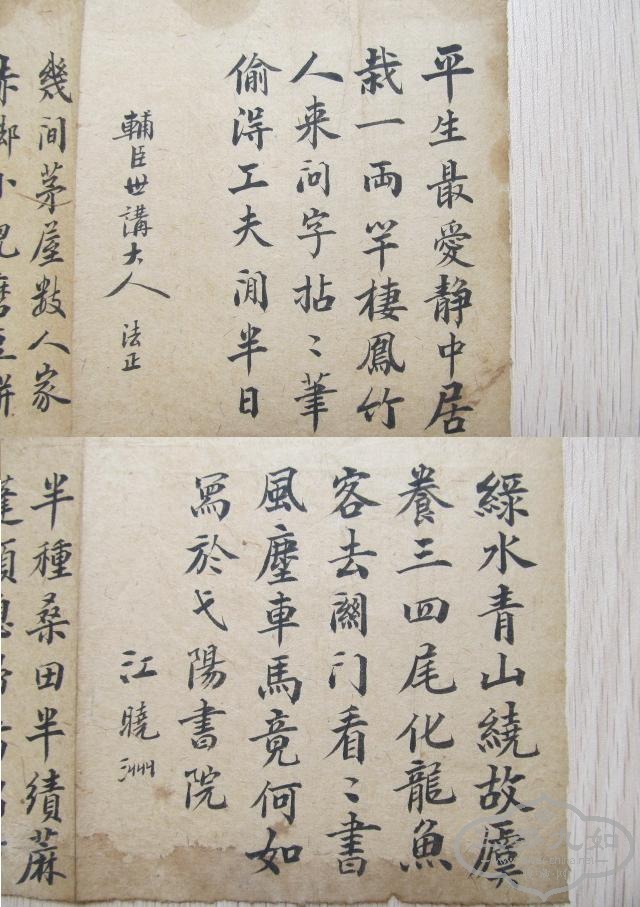 平生最愛静中居
栽一両竿棲鳳竹
人来问字拈〻筆
偷淂工夫閒半日
輔臣世講大人 法正
幾间茅屋数人家
脚小児磨豆餅
綠水青山繞故虞
養三四尾化龍魚
客去關门看〻書
風塵車馬竟何如
寫於弋陽書院
江曉洲
半種桑田半績蔴
蓬頭